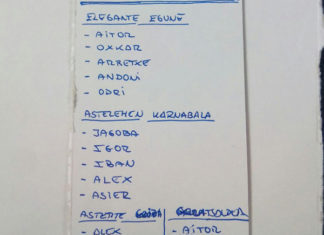 ELEGANTE EGUNE
- AITOR
- OXKAR
- ARRETXE
- ANDONI
- ODRI
ASTELEHEN KARNABALA
- JAGOBA
- IGOR
- IBAN
- ALEX
- ASIER
ASTEARTE
- ALEX - AITOR